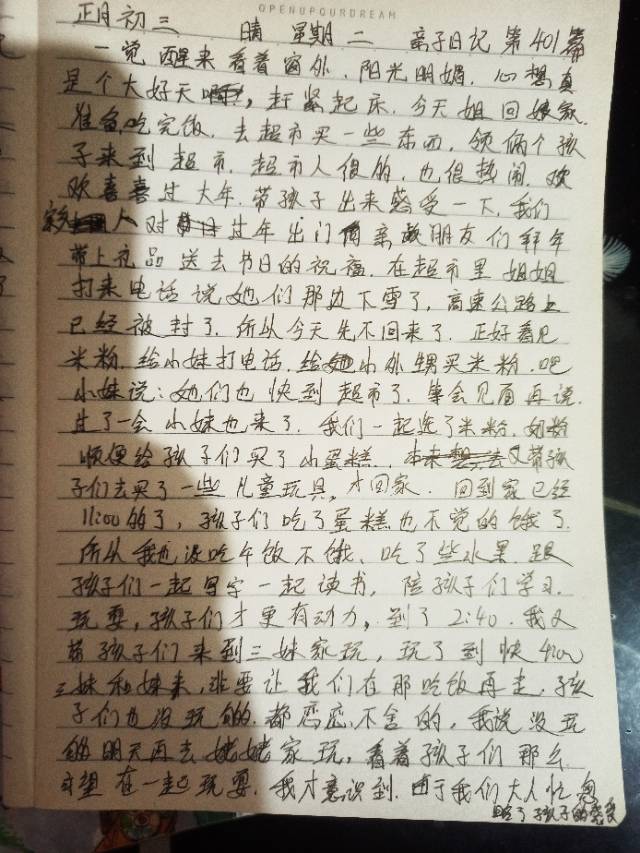 OPENUPOURDREAM
正月初三 晴 星期二 亲子日记 第401篇
一觉醒来看着窗外.阳光明媚.心想真
是个大好天啊,赶紧起床.今天姐回娘家.
准备吃完饭.去超市买一些东西,领俩个孩
子来到超市.超市人很多的,也很热闹.欢
欢喜喜过大年.带孩子出来感受一下,我们
家人对过年出门亲朋友们拜年
带上礼品送去节日的祝福.在超市里姐姐
打来电话说她们那边下雪了,高速公路上
已经被封了.所以今天先不回来了.正好看见
米粉.给小妹打电话.给小外甥买米粉.吧
小妹说:她们也快到超市了.等会见面再说.
过了一会小妹也来了.我们一起选了米粉.奶粉
顺便给孩子们买了小蛋糕.又带孩
子们去买了一些儿童玩具,才回家.回到家已经
11:00的了,孩子们吃了蛋糕也不觉的饿了.
所以我也没吃午饭不饿、吃了些水果.跟
孩子们一起写字一起读书,陪孩子们学习.
玩耍,孩子们才更有动力,到了2:40.我又
带孩子们来到三妹家玩,玩了到快4:00
三妹和妹来,非要让我们在那吃饭再走.孩
子们也没玩够.都恋恋不舍的,我说没玩
够明天再去姥姥家玩,看着孩子们那么
希望在一起玩耍.我才意识到.由于我们大人忙忽
略了孩子的感受